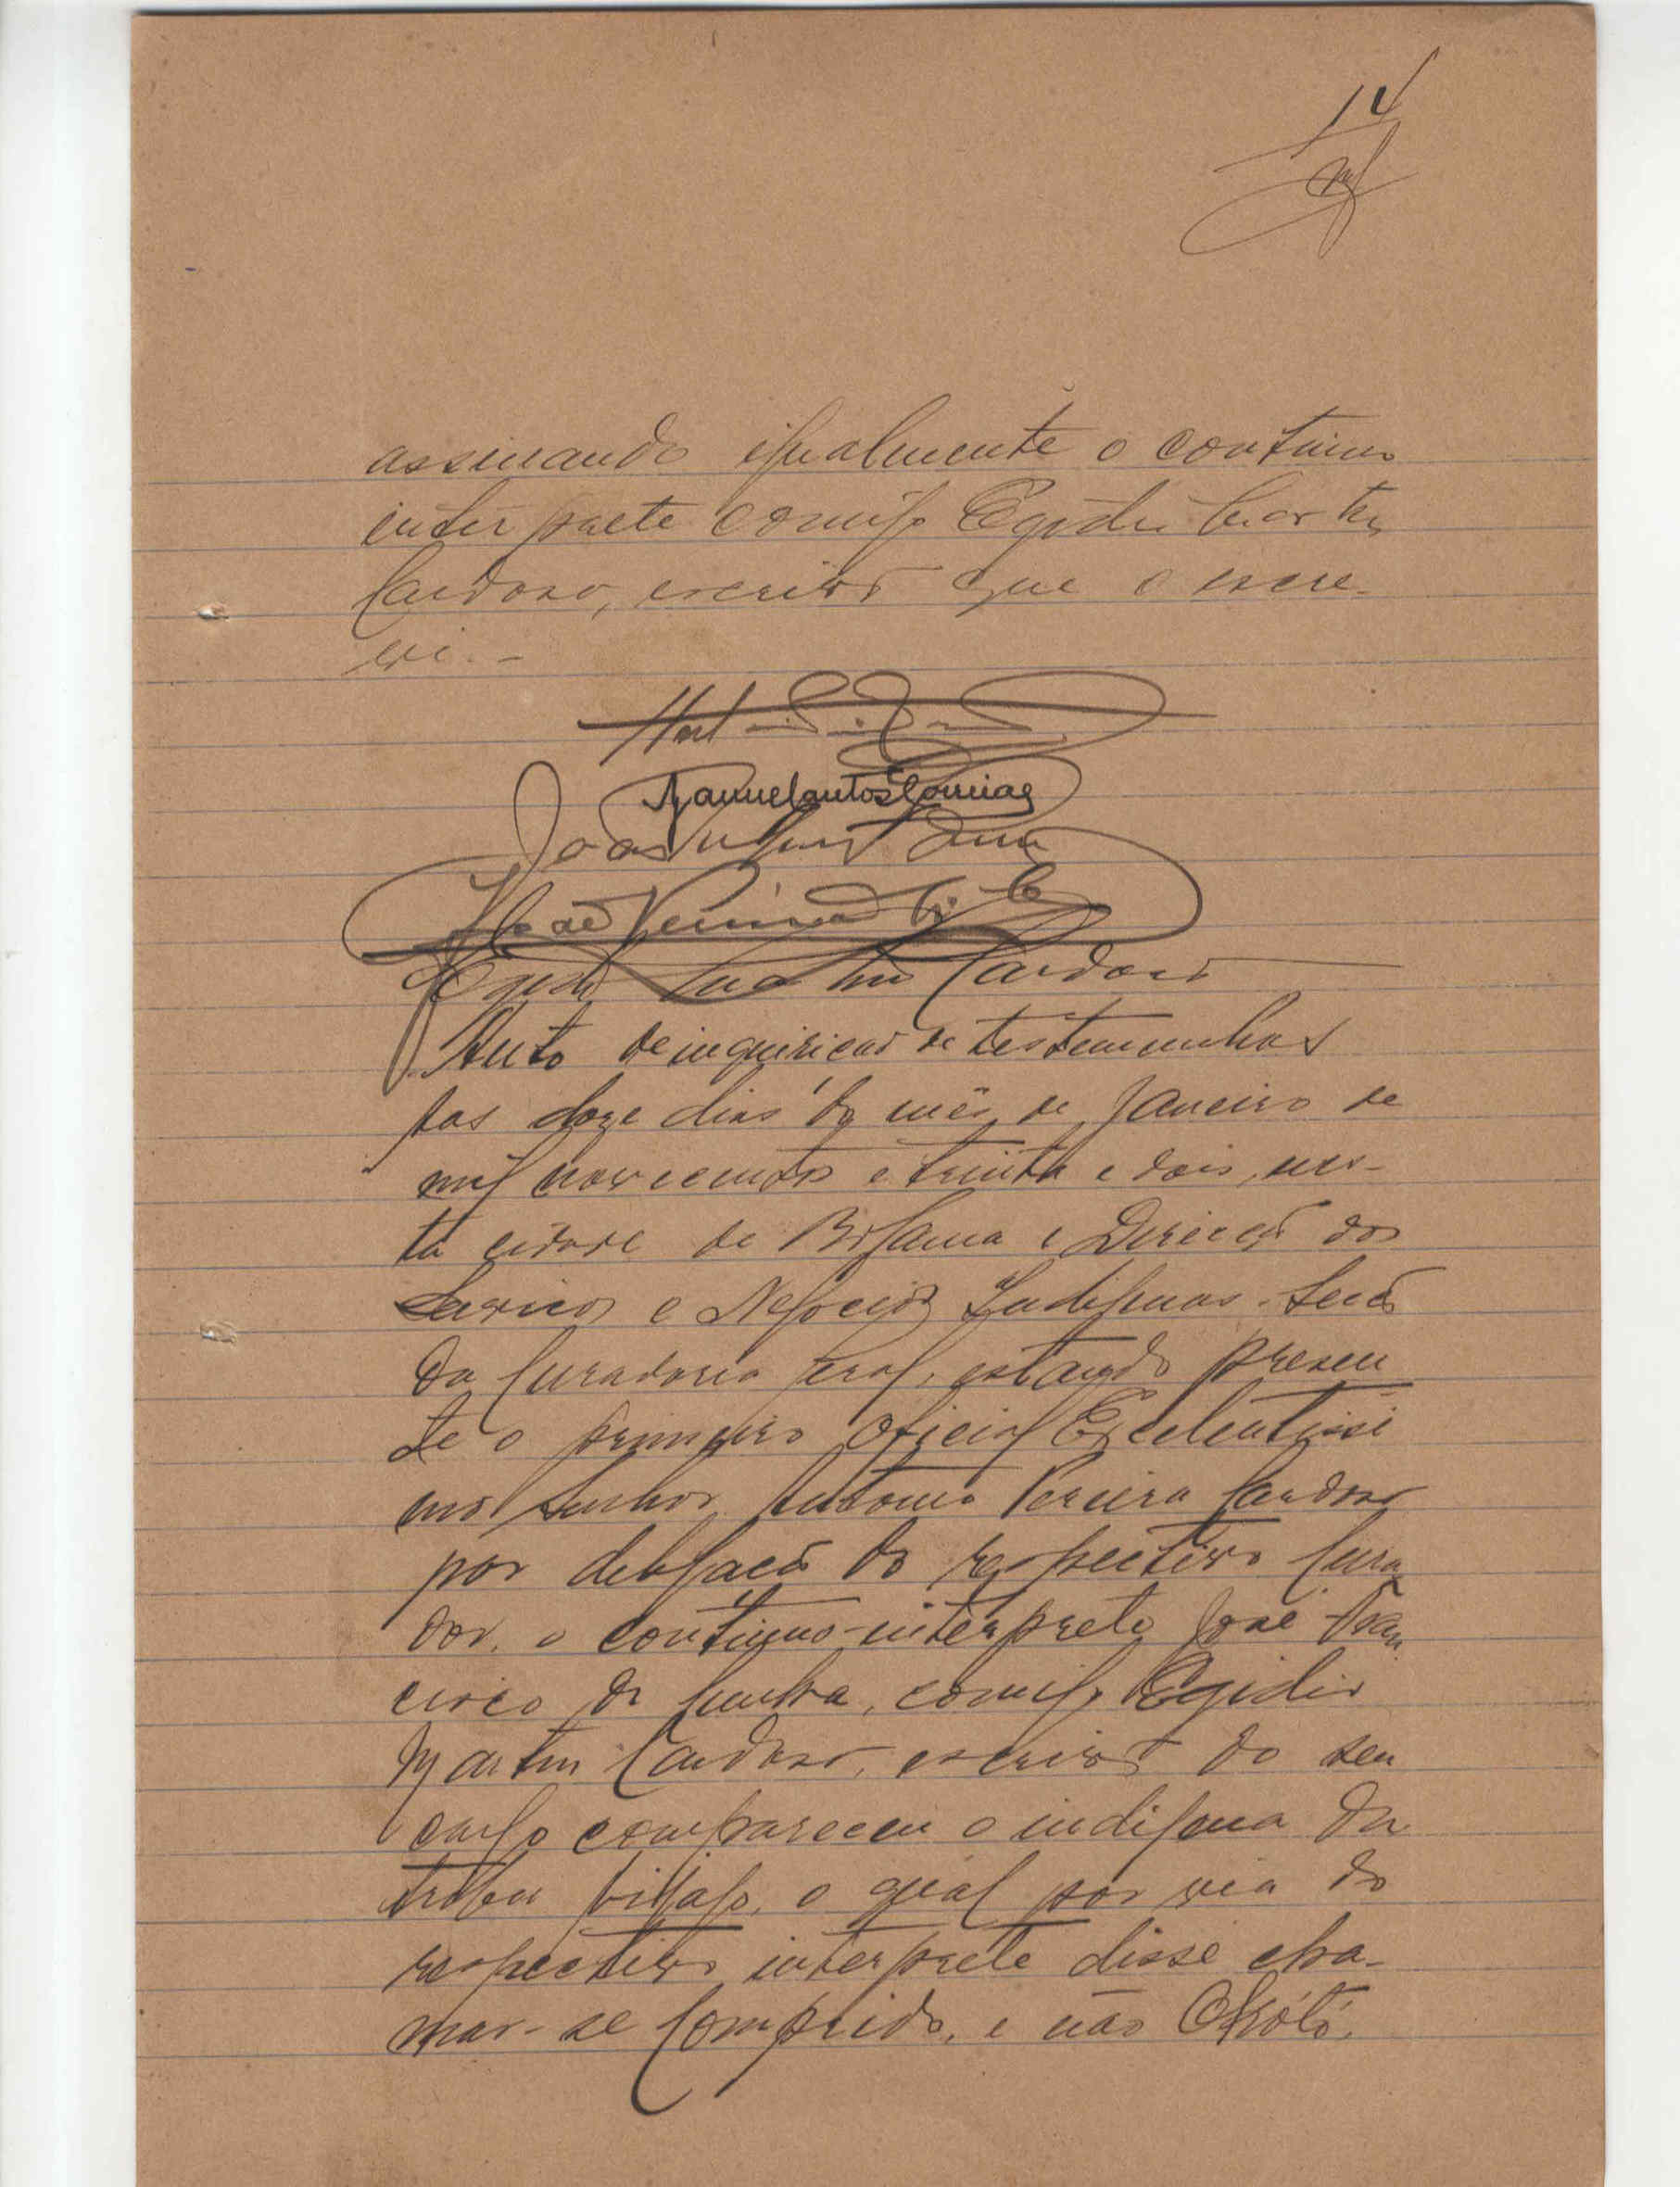 14
assinando igualmente o contínuo
intérprete comigo Egidio Martins
Cardoso, escrivão que o escre-
vi. -
Manuel Santos Correia
João
Egidio Martins Cardoso
Auto de inquirição de testemunhas
Aos doze dias do mês de Janeiro de
mil novecentos e trinta e dois, nes-
ta cidade de Bolama e Direcção dos
Serviços e Negócios Indígenas. Secão
da Curadoria Geral, estando presen
te o primeiro oficial Excelentíssi
mo Senhor António Pereira Cardoso
por delegação do respectivo Cura
dor, o contínuo-intérprete José Fran
cisco da Cunha, comigo Egidio
Martins Cardoso, escrivão do seu
cargo compareceu o indígena da
tribu bijagó, o qual por via do
respectivo intérprete disse cha-
mar-se Comprido, e não Okótó.